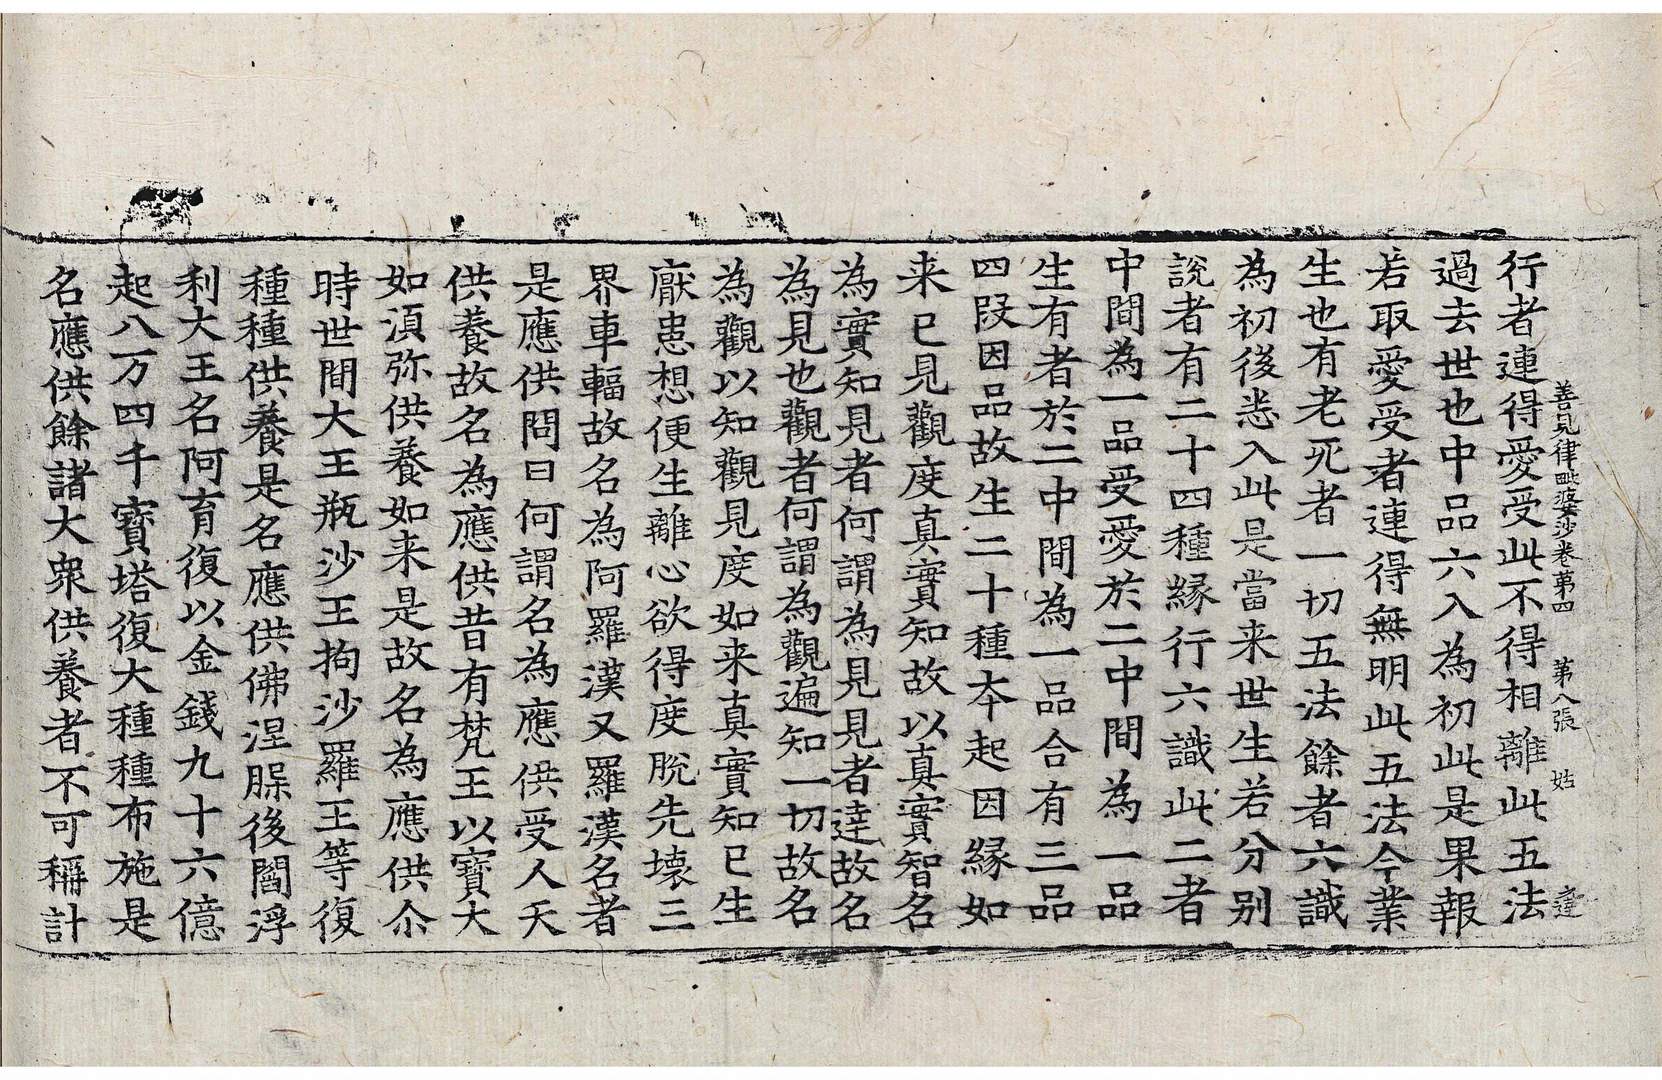 善見律毗婆沙卷第四 第八張 姑 達
行者連得愛受此不得相離此五法
過去世也中品六入為初此是果報
若取愛愛受者連得無明此五法今業
生也有老死者一切五法餘者六識
為初後悉入此是當来世生若分別
說者有二十四種緣行六識此二者
中間為一品受愛於二中間為一品
生有者於二中間為一品合有三品
四段因品故生二十種本起因緣如
来已見觀度真實知故以真實智名
為實知見者何謂為見見者達故名
為見也觀者何謂為觀遍知一切故名
為觀以知觀見度如来真實知已生
厭患想便生離心欲得度脫先壞三
界車輻故名為阿羅漢又羅漢名者
是應供問曰何謂名為應供受人天
供養故名為應供昔有梵王以寶大
如湏弥供養如来是故名為應供尒
時世間大王瓶沙王拘沙羅王等復
種種供養是名應供佛涅䏶後閻浮
利大王名阿育復以金錢九十六億
起八万四千寶塔復大種種布施是
名應供餘諸大衆供養者不可稱計